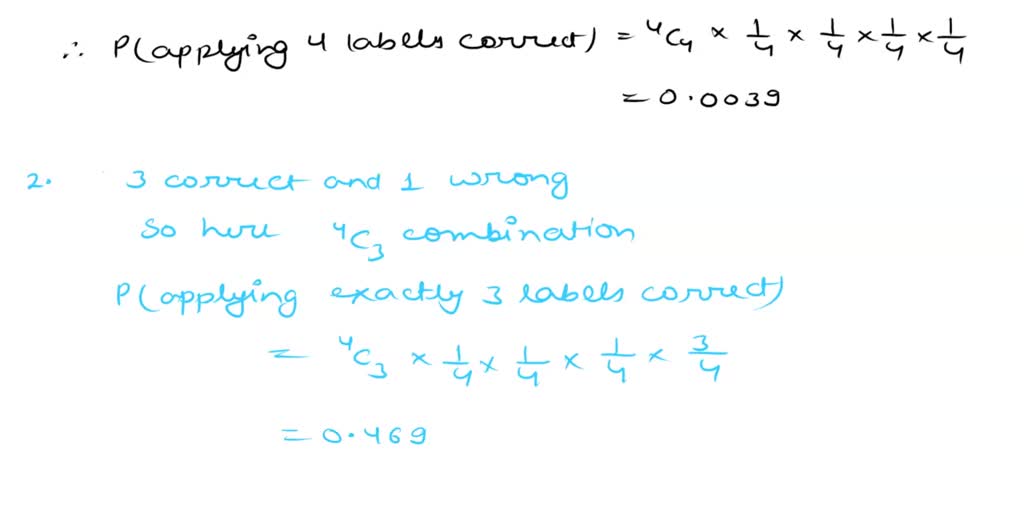 ∴ P(applying 4 labels correct) = ⁴C₄ × 1/4 × 1/4 × 1/4 × 1/4
= 0.0039
2. 3 correct and 1 wrong
So here ⁴C₃ combination
P(applying exactly 3 labels correct)
= ⁴C₃ × 1/4 × 1/4 × 1/4 × 3/4
= 0.469